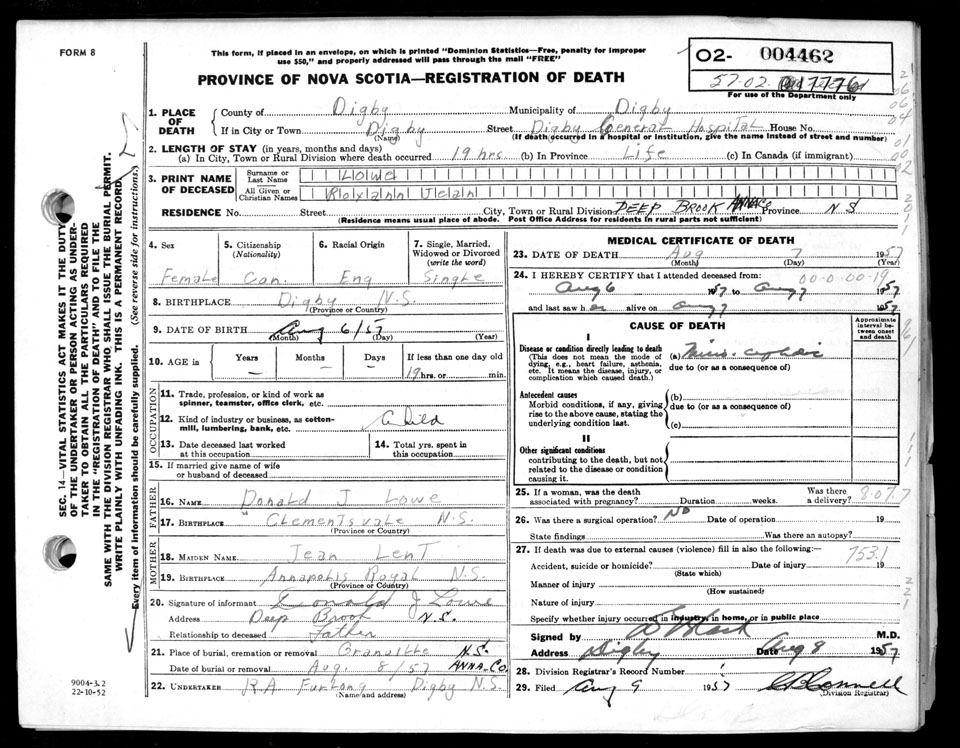 FORM 8
This form, if placed in an envelope, on which is printed "Dominion Statistics—Free, penalty for improper
use $50," and properly addressed will pass through the mail "FREE"
PROVINCE OF NOVA SCOTIA—REGISTRATION OF DEATH
O2- 004462
57-02. 17776
For use of the Department only
SEC. 14—VITAL STATISTICS ACT MAKES IT THE DUTY
OF THE UNDERTAKER OR PERSON ACTING AS UNDER-
TAKER TO OBTAIN ALL THE PARTICULARS REQUIRED
IN THE "REGISTRATION OF DEATH" AND TO FILE THE
SAME WITH THE DIVISION REGISTRAR WHO SHALL ISSUE THE BURIAL PERMIT.
WRITE PLAINLY WITH UNFADING INK. THIS IS A PERMANENT RECORD.
Every item of information should be carefully supplied. (See reverse side for instructions.)
1. PLACE OF DEATH County of Digby Municipality of Digby
If in City or Town Digby Street Digby General Hospital House No.
(Name) (If death occurred in a hospital or institution, give the name instead of street and number)
2. LENGTH OF STAY (in years, months and days)
(a) In City, Town or Rural Division where death occurred 19 hrs. (b) In Province Life (c) In Canada (if immigrant)
3. PRINT NAME OF DECEASED Surname or Last Name Lowe
All Given or Christian Names Roxann Jean
RESIDENCE No. Street City, Town or Rural Division DEEP BROOK ANNA CO Province N S
(Residence means usual place of abode. Post Office Address for residents in rural parts not sufficient)
4. Sex 5. Citizenship (Nationality) 6. Racial Origin 7. Single, Married, Widowed or Divorced (write the word)
Female Can. Eng Single
8. BIRTHPLACE Digby N.S.
(Province or Country)
9. DATE OF BIRTH Aug 6/57
(Month) (Day) (Year)
10. AGE in Years Months Days If less than one day old
— — — 19 hrs. or min.
OCCUPATION
11. Trade, profession, or kind of work as
spinner, teamster, office clerk, etc.
12. Kind of industry or business, as cotton-
mill, lumbering, bank, etc. Child
13. Date deceased last worked at this occupation 14. Total yrs. spent in this occupation
15. If married give name of wife
or husband of deceased
FATHER
16. NAME Donald J Lowe
17. BIRTHPLACE Clementsvale N.S.
(Province or Country)
MOTHER
18. MAIDEN NAME Jean Lent
19. BIRTHPLACE Annapolis Royal N.S.
(Province or Country)
20. Signature of informant Donald J Lowe
Address Deep Brook N.S.
Relationship to deceased Father
21. Place of burial, cremation or removal Granville N.S.
Date of burial or removal Aug. 8/57 ANNA. CO.
22. UNDERTAKER R.A. Furlong Digby N.S.
(Name and address)
9004-3.2
22-10-52
MEDICAL CERTIFICATE OF DEATH
23. DATE OF DEATH Aug 7 1957
(Month) (Day) (Year)
24. I HEREBY CERTIFY that I attended deceased from: 00-0-00-19
Aug 6 1957 to Aug 7 1957
and last saw her alive on Aug 7 1957
CAUSE OF DEATH
Approximate interval between onset and death
I
Disease or condition directly leading to death (a)
(This does not mean the mode of due to (or as a consequence of)
dying, e.g., heart failure, asthenia,
etc. It means the disease, injury, or
complication which caused death.)
Antecedent causes (b)
Morbid conditions, if any, giving due to (or as a consequence of)
rise to the above cause, stating the
underlying condition last. (c)
II
Other significant conditions
contributing to the death, but not
related to the disease or condition
causing it.
25. If a woman, was the death Was there
associated with pregnancy? Duration weeks. a delivery? 8.07.7
26. Was there a surgical operation? NO Date of operation 19
State findings Was there an autopsy?
27. If death was due to external causes (violence) fill in also the following:— 753.1
Accident, suicide or homicide? Date of injury 19
(State which)
Manner of injury
(How sustained)
Nature of injury
Specify whether injury occurred in industry, in home, or in public place
Signed by M.D.
Address Digby Date Aug 8 1957
28. Division Registrar's Record Number 1
29. Filed Aug 9 1957
(Division Registrar)